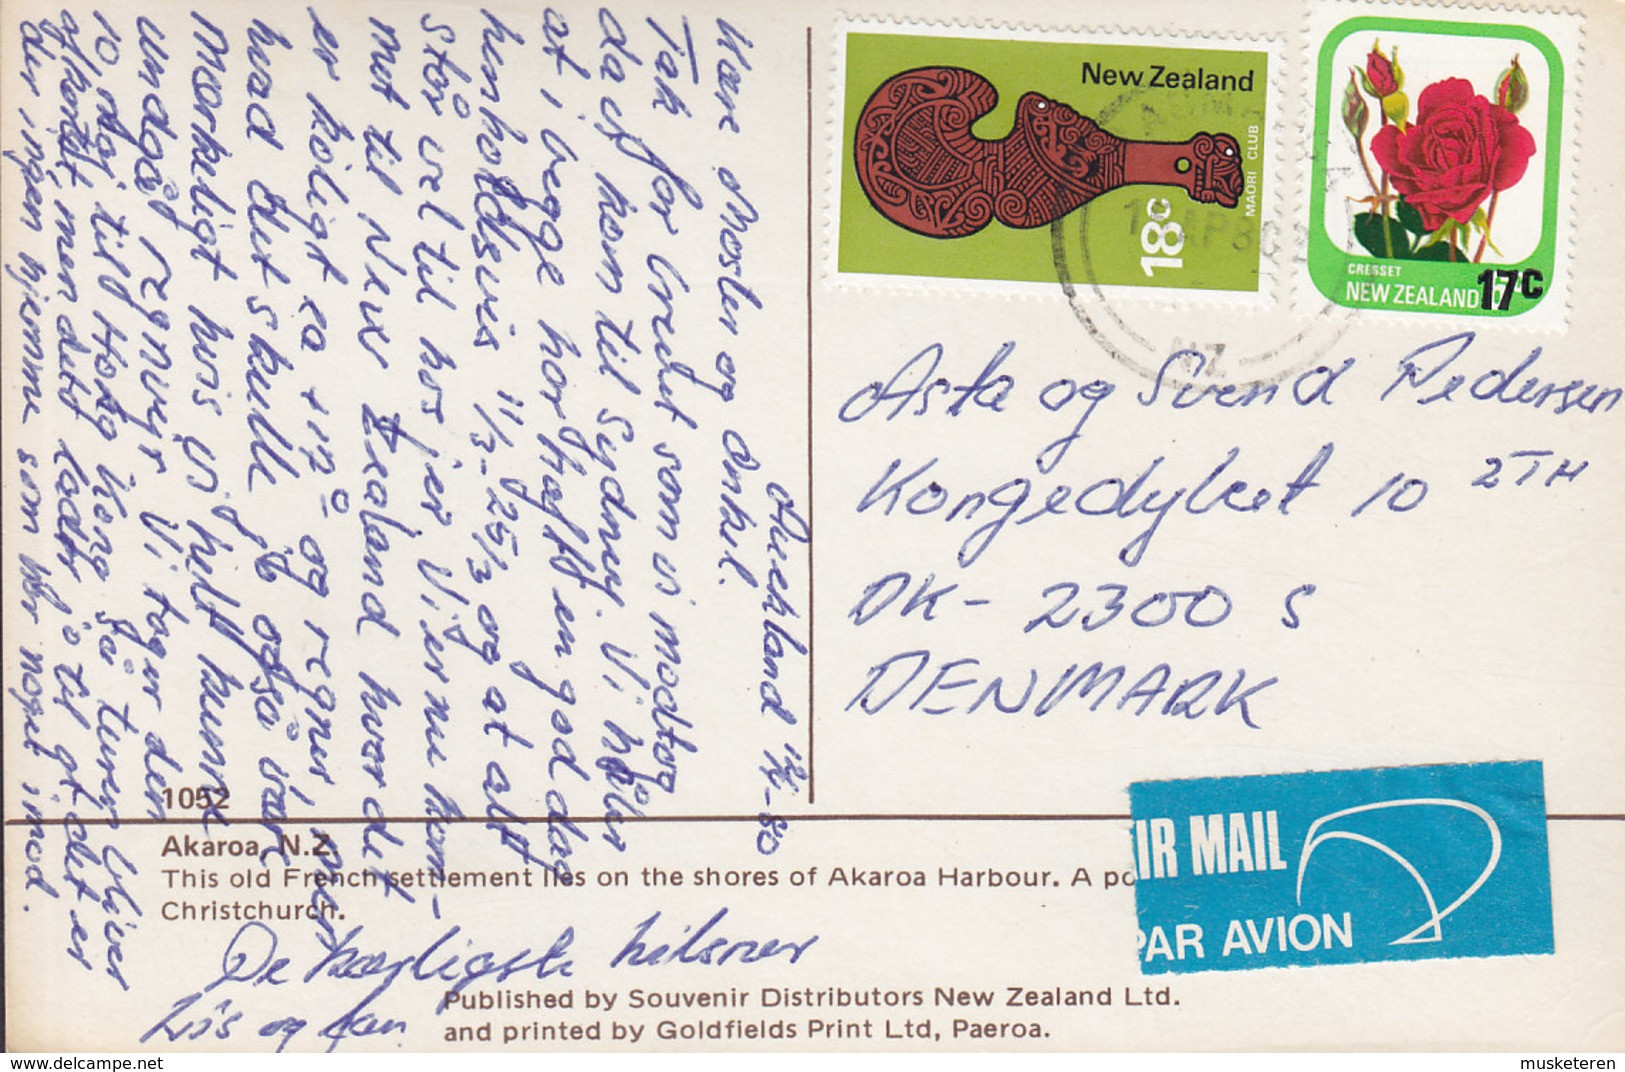 Auckland 14/4-80
Kære Moster og Onkel.
Tak for brevet som vi modtog
da vi kom til Sydney. Vi håber
at i begge har haft en god dag
henholdsvis 11/3-25/3 og at alt
står vel til hos jer. Vi er nu kom-
met til New Zealand hvor det
er køligt ca +12° og regner, men
hvad det skulle jo også være
mærkeligt hvis vi helt kunne
undgå regnvejr. Vi tager den
10 maj til Hong Kong så turen bliver
afkortet, men det lader jo til at det er
der ingen hjemme som har noget imod.
De kærligste hilsner
Lis og Jan
New Zealand
18c
MAORI CLUB
CRESSET
NEW ZEALAND
17c
NZ
Asta og Svend Pedersen
Kongedybet 10 2TH
DK-2300 S
DENMARK
1052
Akaroa, N.Z.
This old French settlement lies on the shores of Akaroa Harbour. A po
Christchurch.
IR MAIL
PAR AVION
Published by Souvenir Distributors New Zealand Ltd.
and printed by Goldfields Print Ltd, Paeroa.
delcampe.net
musketeren